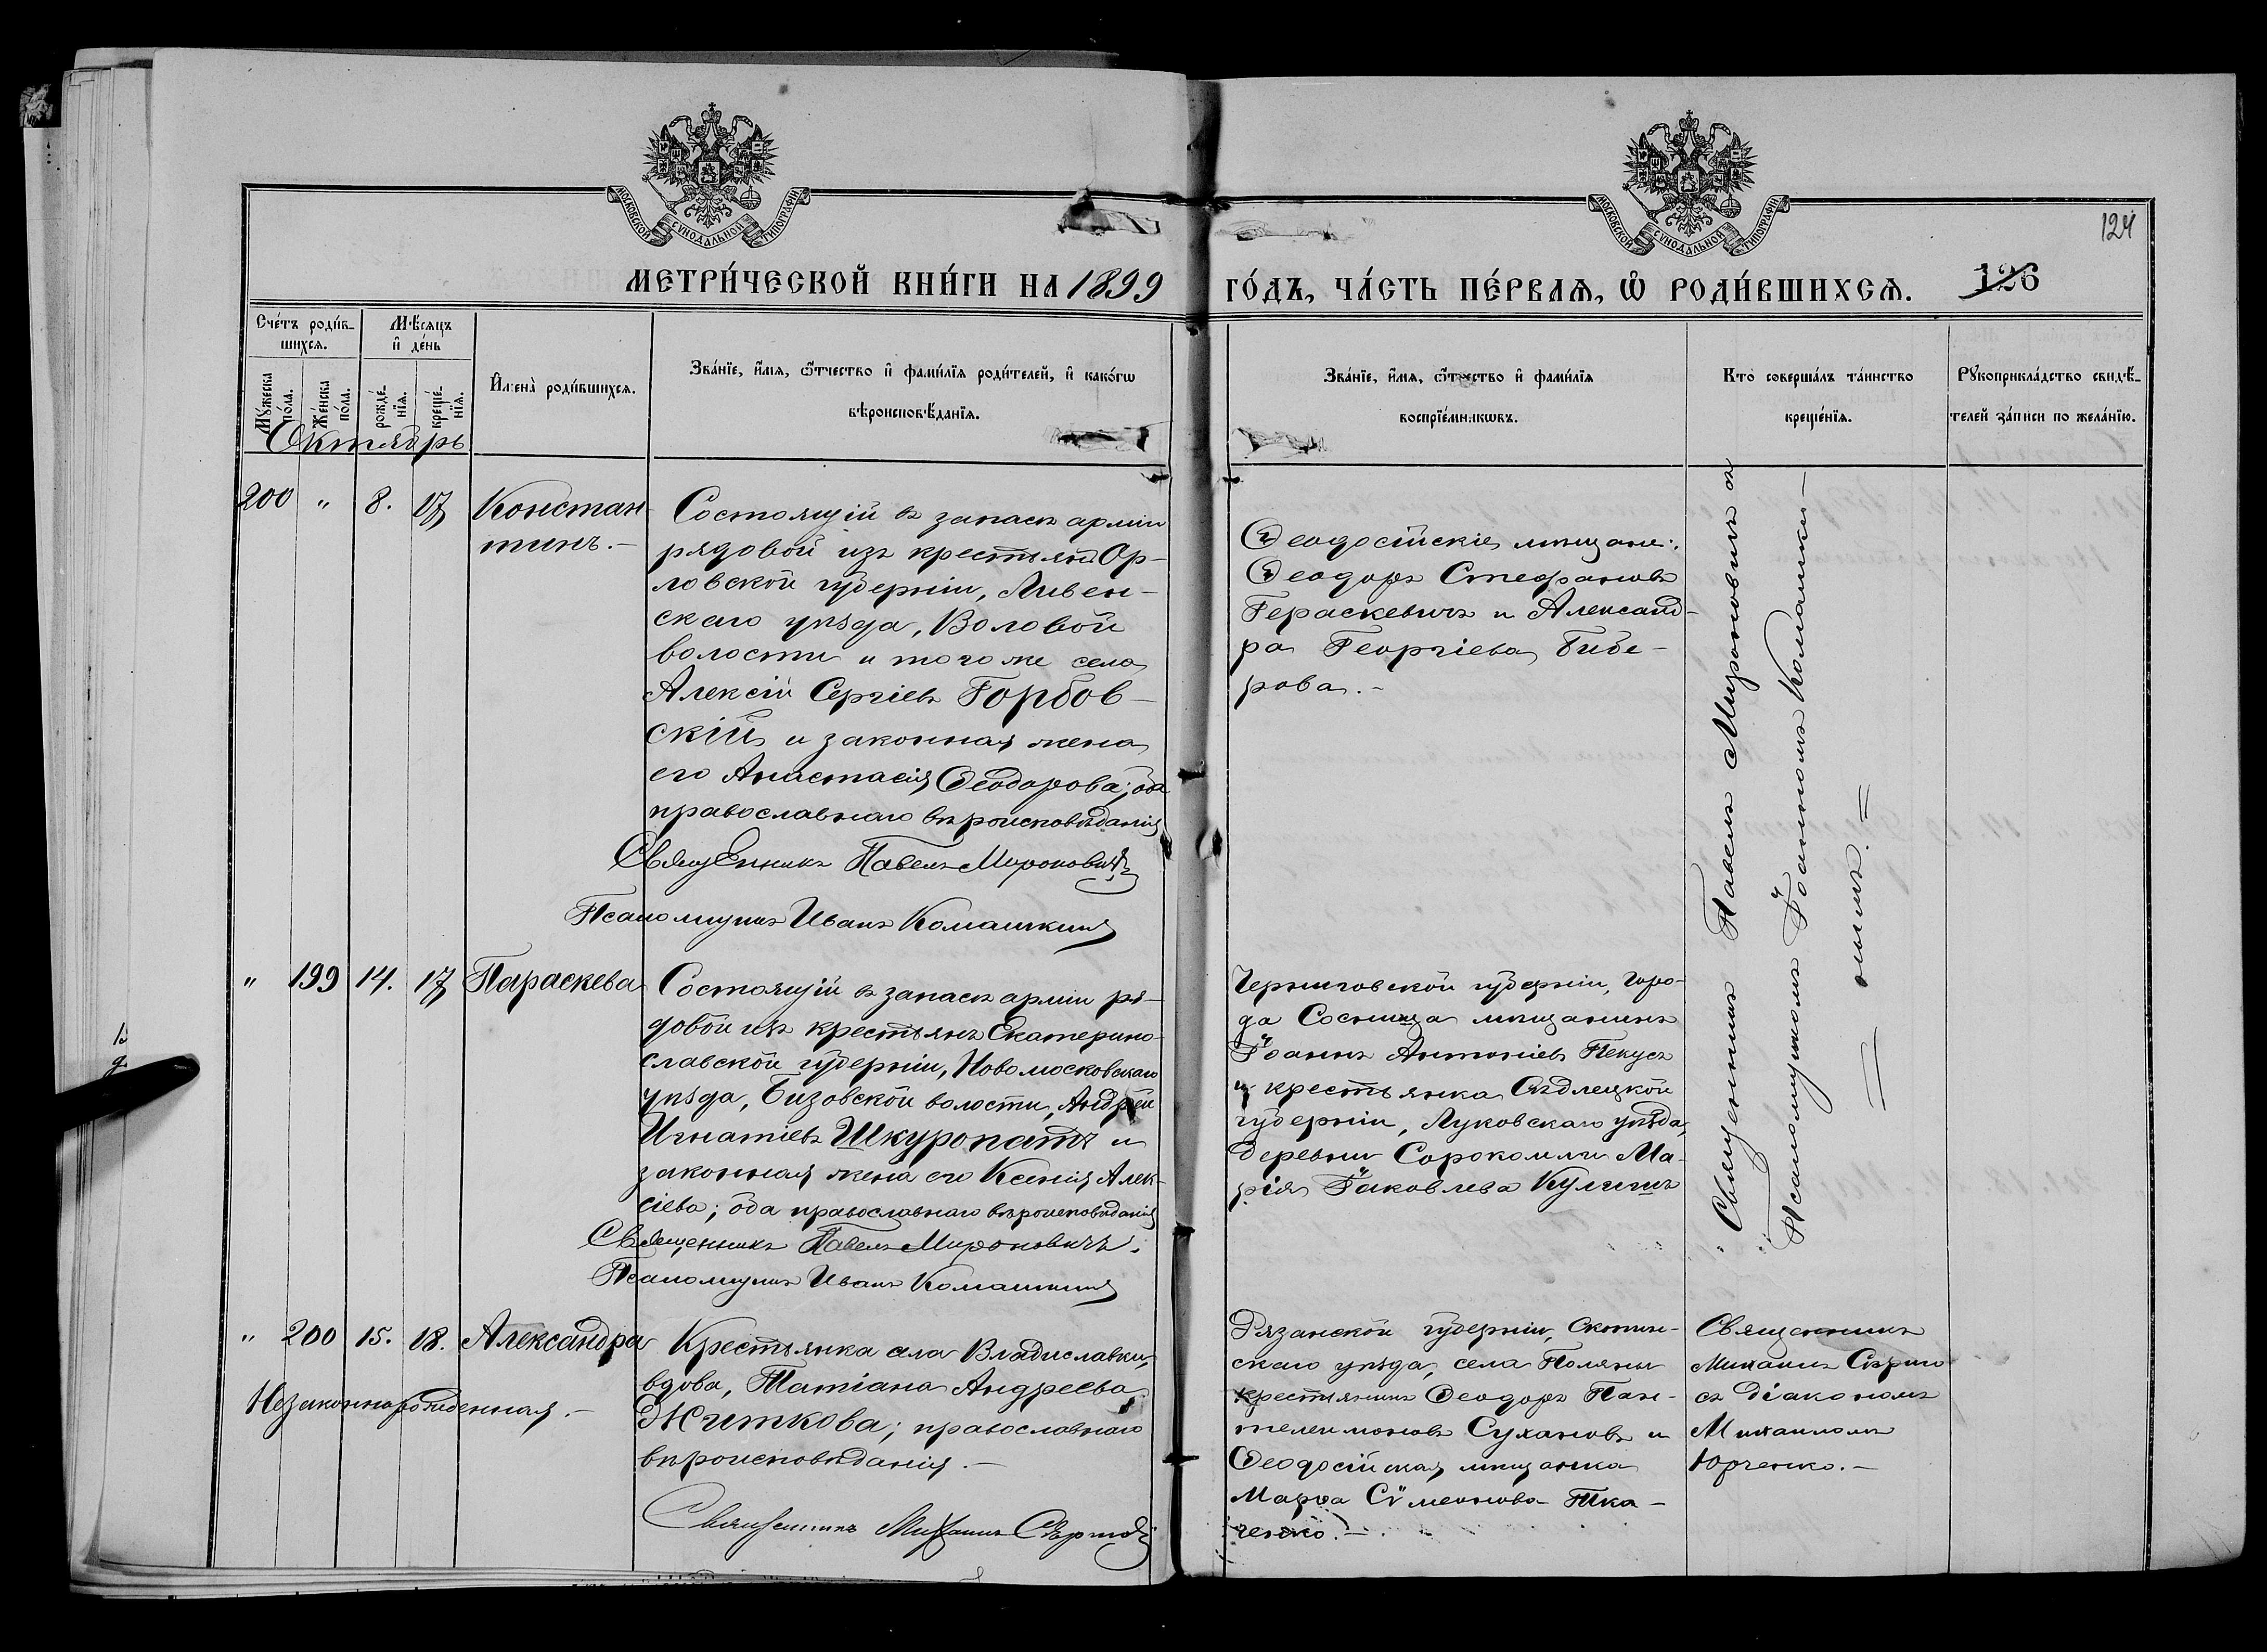 МОСКОВСКОЙ СѴНОДАЛЬНОЙ ТИПОГРАФІИ
МОСКОВСКОЙ СѴНОДАЛЬНОЙ ТИПОГРАФІИ
124
МЕТРИ́ЧЕСКОЙ КНИ́ГИ НА 1899 ГО́ДЪ, ЧА́СТЬ ПЕ́РВАѦ, Ѡ РОДИ́ВШИХСѦ. 126
Сче́тъ роди́в-
шихсѧ.
Мꙋ́жеска по́ла.
Же́нска по́ла.
Мѣ́сяцъ
и҆ де́нь
рожде́-
нїѧ.
креще́-
нїѧ.
И҆мена̀ роди́вшихсѧ.
Зва́нїе, и҆́мѧ, ѻ҆́тчество и҆ фами́лїѧ роди́телей, и҆ како́гѡ
вѣроисповѣ́данїѧ.
Зва́нїе, и҆́мѧ, ѻ҆́тчество и҆ фами́лїѧ
воспрїе́мникѡвъ.
Кто̀ соверша́лъ та́инство
креще́нїѧ.
Рꙋкоприкла́дство свидѣ́-
телей за́писи по жела́нїю.
Октябрь
200 " 8. 17 Констан-
тинъ.-
Состоящій въ запасѣ арміи
рядовой изъ крестьянъ Ор-
ловской губерніи, Ливен-
скаго уѣзда, Воловой
волости и того же села
Алексій Сергіевъ Горбов-
скій и законная жена
его Анастасія Ѳеодорова; оба
православнаго вѣроисповѣданія
Священникъ Павелъ Мироновичъ
Псаломщикъ Иванъ Комашкинъ
Ѳеодосійскіе мѣщане:
Ѳеодоръ Стефановъ
Гераскевичъ и Александ-
ра Георгіева Бибе-
рова.-
Священникъ Павелъ Мироновичъ съ
Псаломщикомъ Іоанномъ Комашки-
нымъ.
" 199 14. 17 Параскева
Состоящій въ запасѣ арміи ря-
довой изъ крестьянъ Екатерино-
славской губерніи, Новомосковскаго
уѣзда, Бузовской волости, Андрей
Игнатіевъ Шкуропатъ и
законная жена его Ксенія Алек-
сіева; оба православнаго вѣроисповѣданія
Священникъ Павелъ Мироновичъ.
Псаломщикъ Иванъ Комашкинъ
Черниговской губерніи, горо-
да Сосница мѣщанинъ
Іоаннъ Антоніевъ Пекусъ
и крестьянка Сѣдлецкой
губерніи, Луковскаго уѣзда,
деревни Сорокомли Ма-
рія Іаковлева Кулишъ
" 200 15. 18. Александра
Незаконнорожденная.-
Крестьянка села Владиславки,
вдова, Татіана Андреева
Житкова; православнаго
вѣроисповѣданія.-
Священникъ Михаилъ
Рязанской губерніи, Скопин-
скаго уѣзда, села Поляны
крестьянинъ Ѳеодоръ Пан-
телеимоновъ Сухановъ и
Ѳеодосійская мѣщанка
Марѳа Сѵмеонова Тка-
ченко.-
Священникъ
Михаилъ
съ діакономъ
Михаиломъ
Юрченко.-